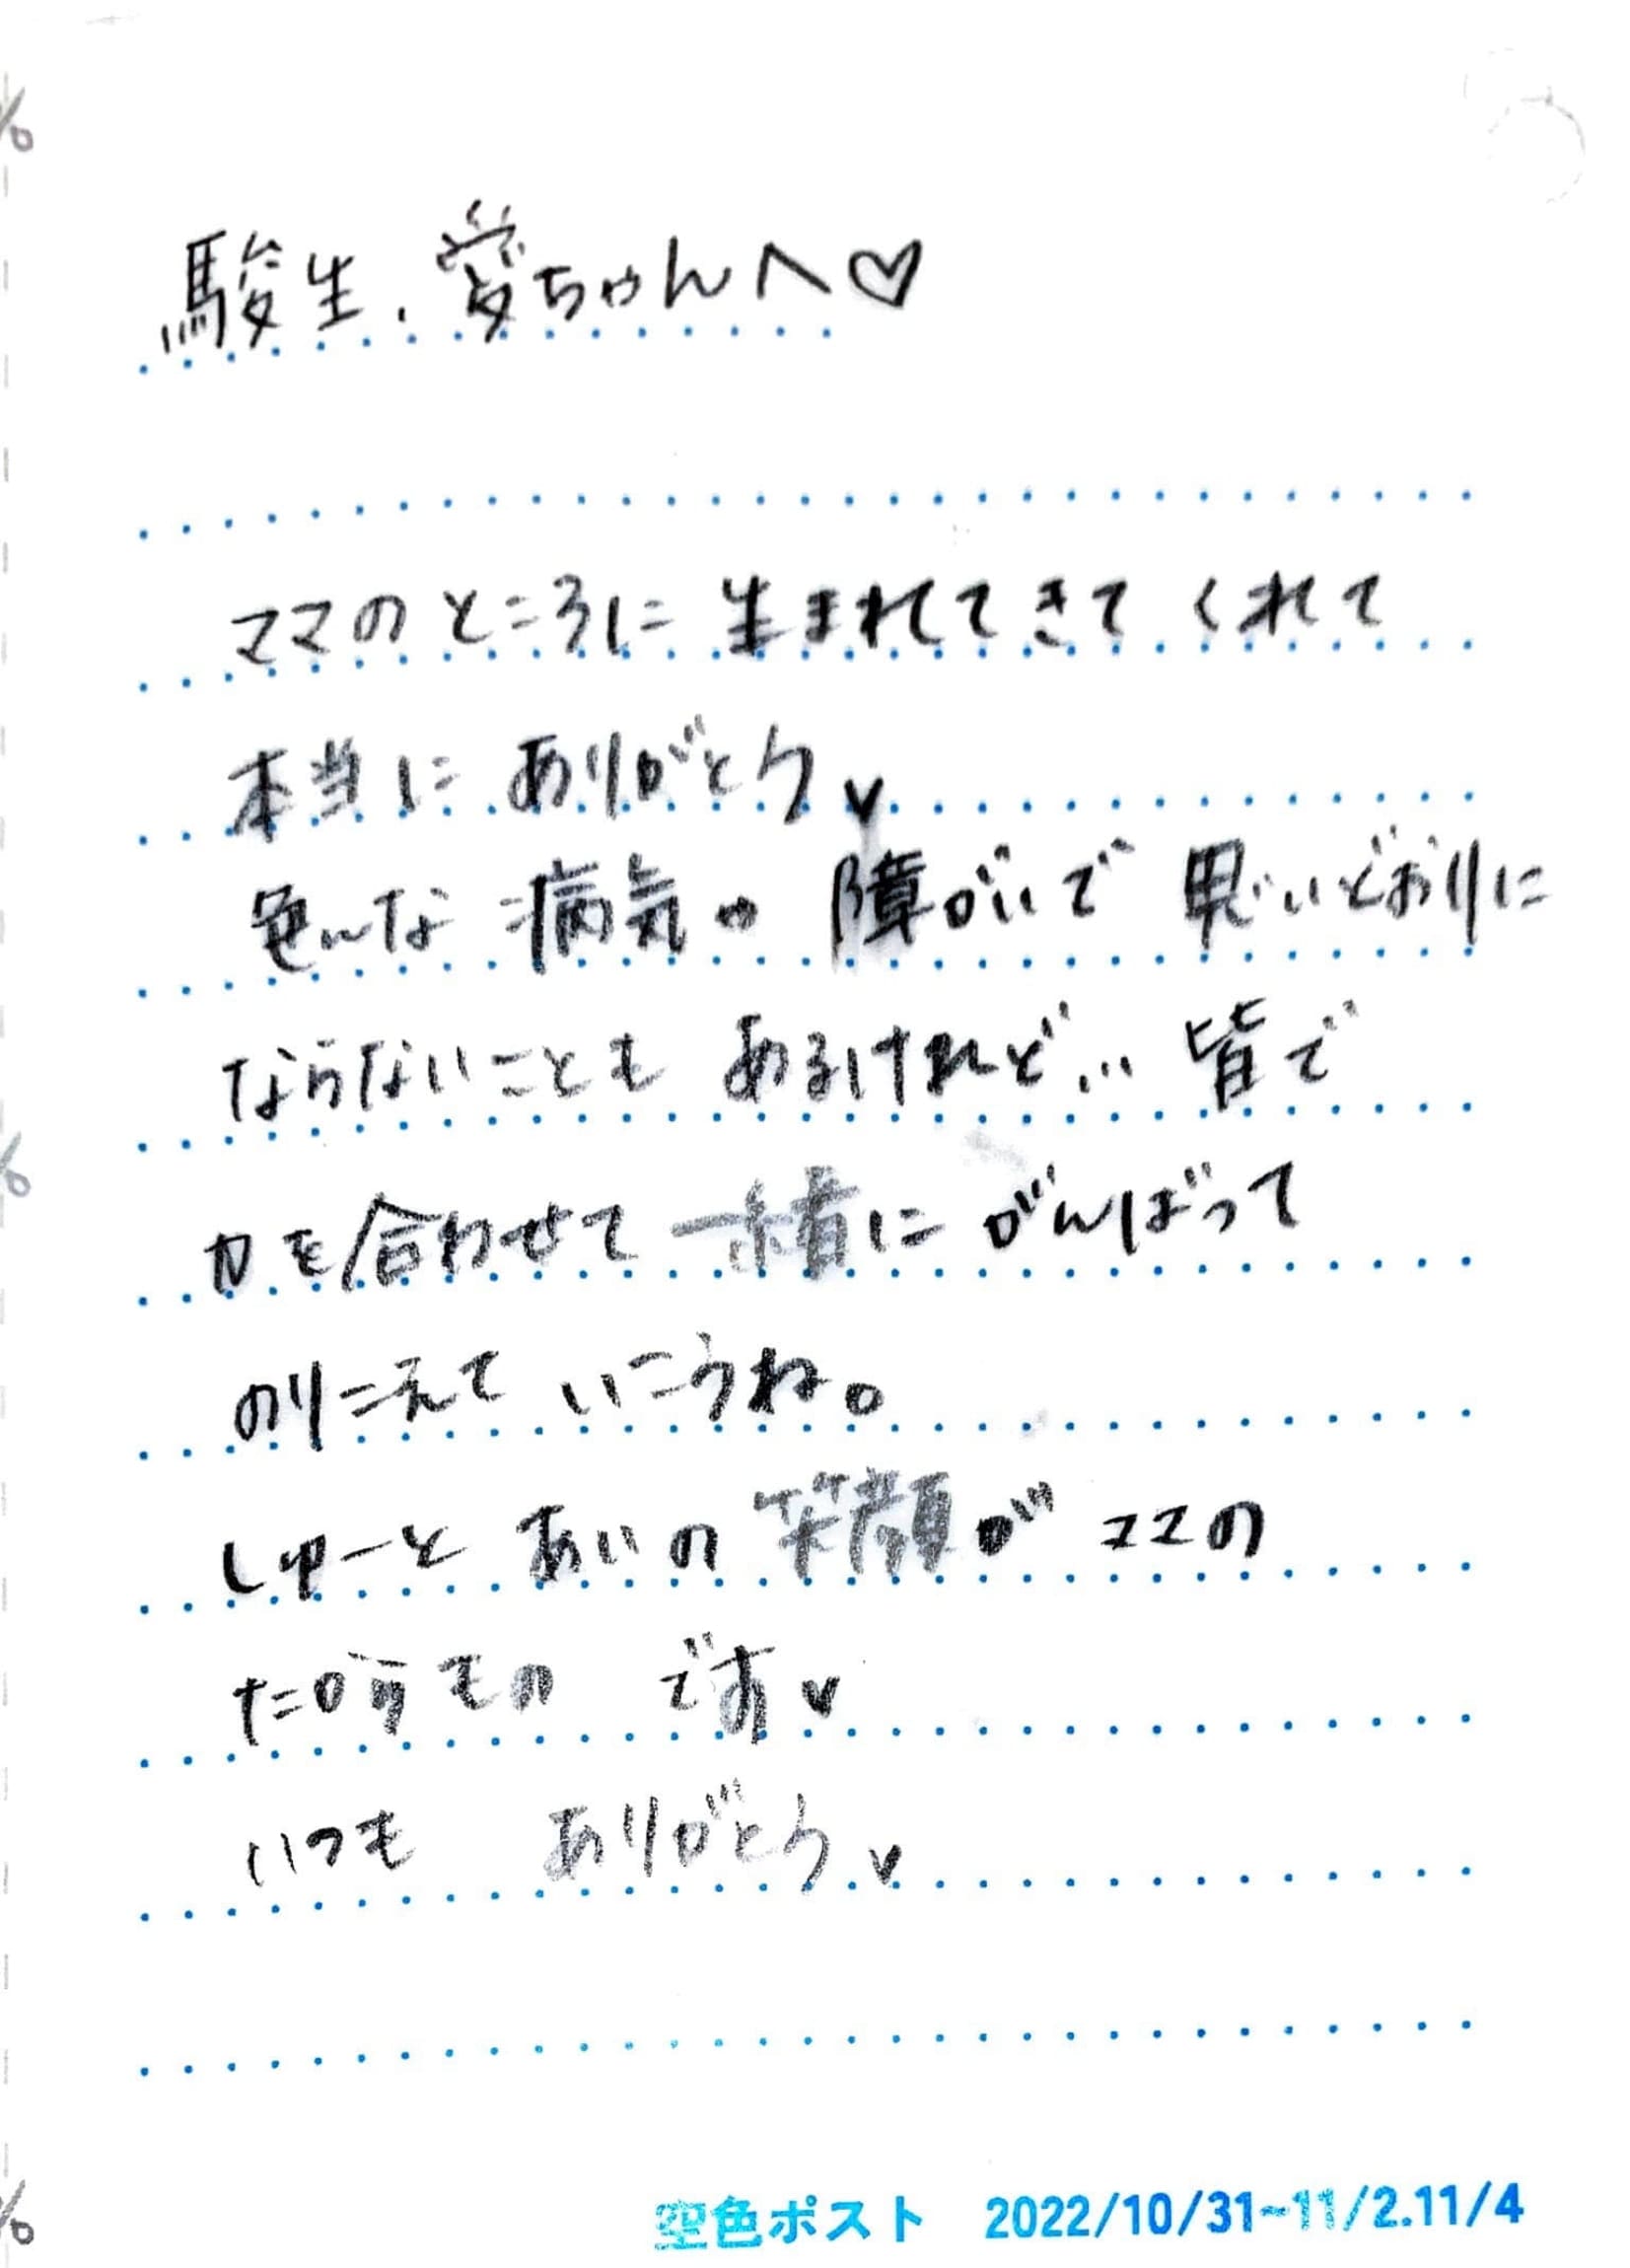 駿生、愛ちゃんへ♡
ママのところに 生まれてきてくれて
本当に ありがとう♥
色んな 病気や 障がいで 思いどおりに
ならないことも あるけれど… 皆で
力を合わせて 一緒に がんばって
のりこえて いこうね。
しゅーと あいの 笑顔が ママの
たからもの です♥
いつも ありがとう♥
空色ポスト 2022/10/31~11/2.11/4